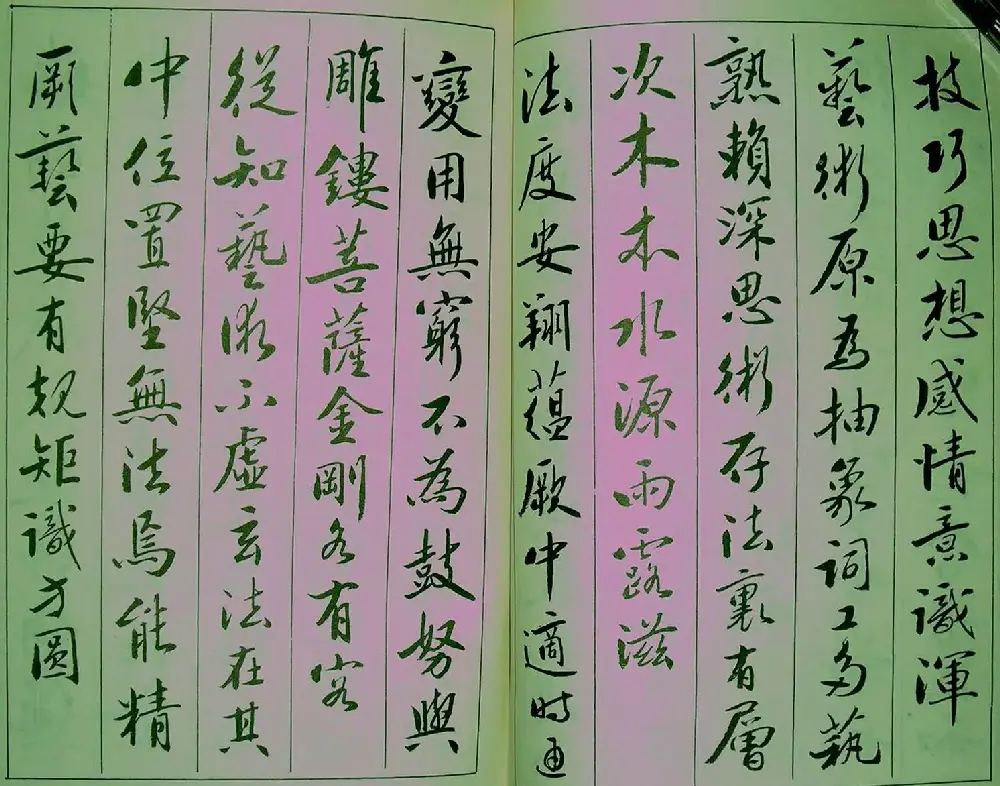 技巧思想感情意識渾
藝術原為抽象詞工多執
熟賴深思術存法裏有層
次木木水源雨露滋
法度安翔蘊厥中適時通
變用無窮不為鼓努與
雕鏤菩薩金剛各有容
從知藝術不虛玄法在其
中位置堅無法焉能精
厥藝要有規矩識方圓